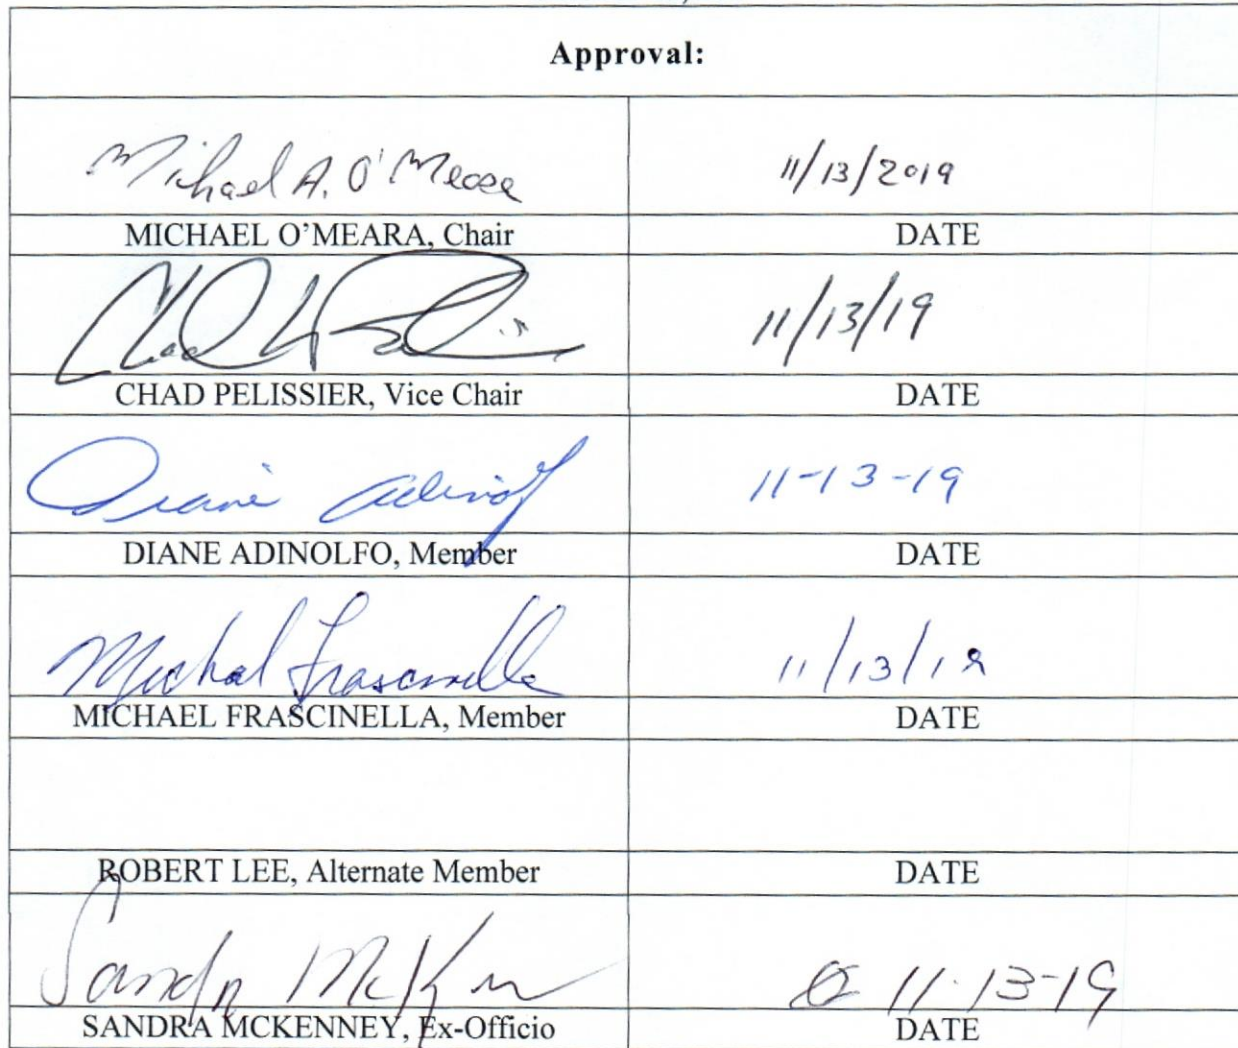 Approval:
Michael A. O'Meara 11/13/2019
MICHAEL O'MEARA, Chair DATE
11/13/19
CHAD PELISSIER, Vice Chair DATE
Diane Adinolf 11-13-19
DIANE ADINOLFO, Member DATE
Michael Frascinella 11/13/19
MICHAEL FRASCINELLA, Member DATE
ROBERT LEE, Alternate Member DATE
Sandra McKen 11-13-19
SANDRA MCKENNEY, Ex-Officio DATE